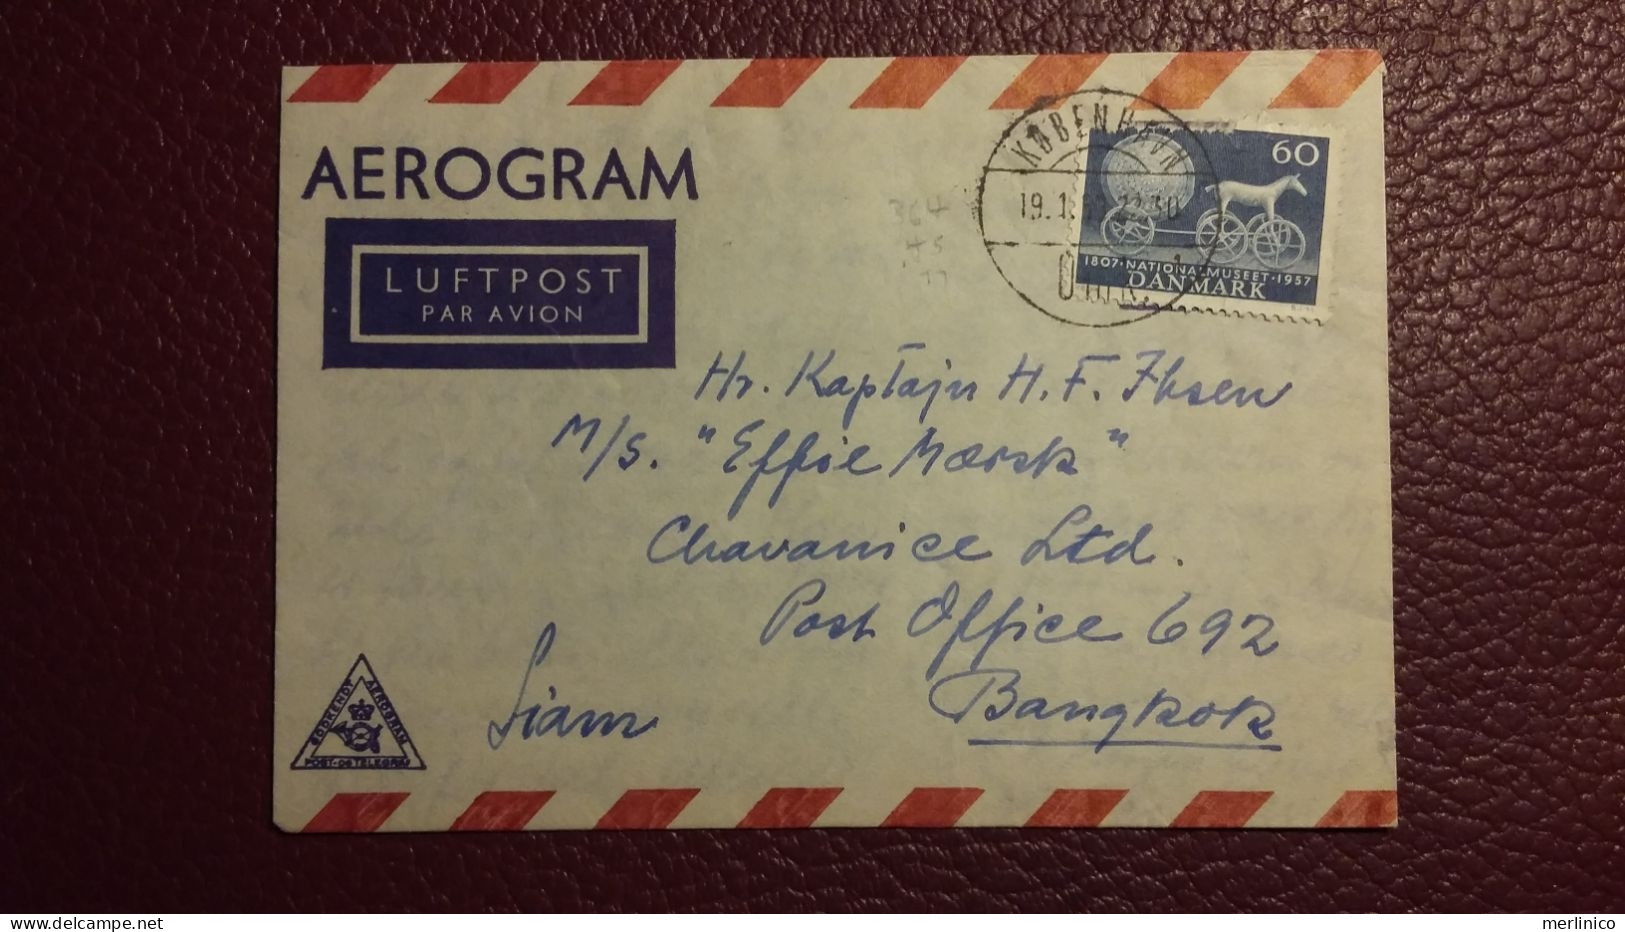 AEROGRAM
LUFTPOST
PAR AVION
KØBENHAVN
19.1
22.30
60
1807·NATIONALMUSEET·1957
DANMARK
364
Hr. Kaptajn H. F. Ibsen
M/S. "Effie Mærsk"
Chavanice Ltd.
Post Office 692
Bangkok
Siam
GODKENDT
AEROGRAM
POST-OG TELEGRAF
delcampe.net
merlinico